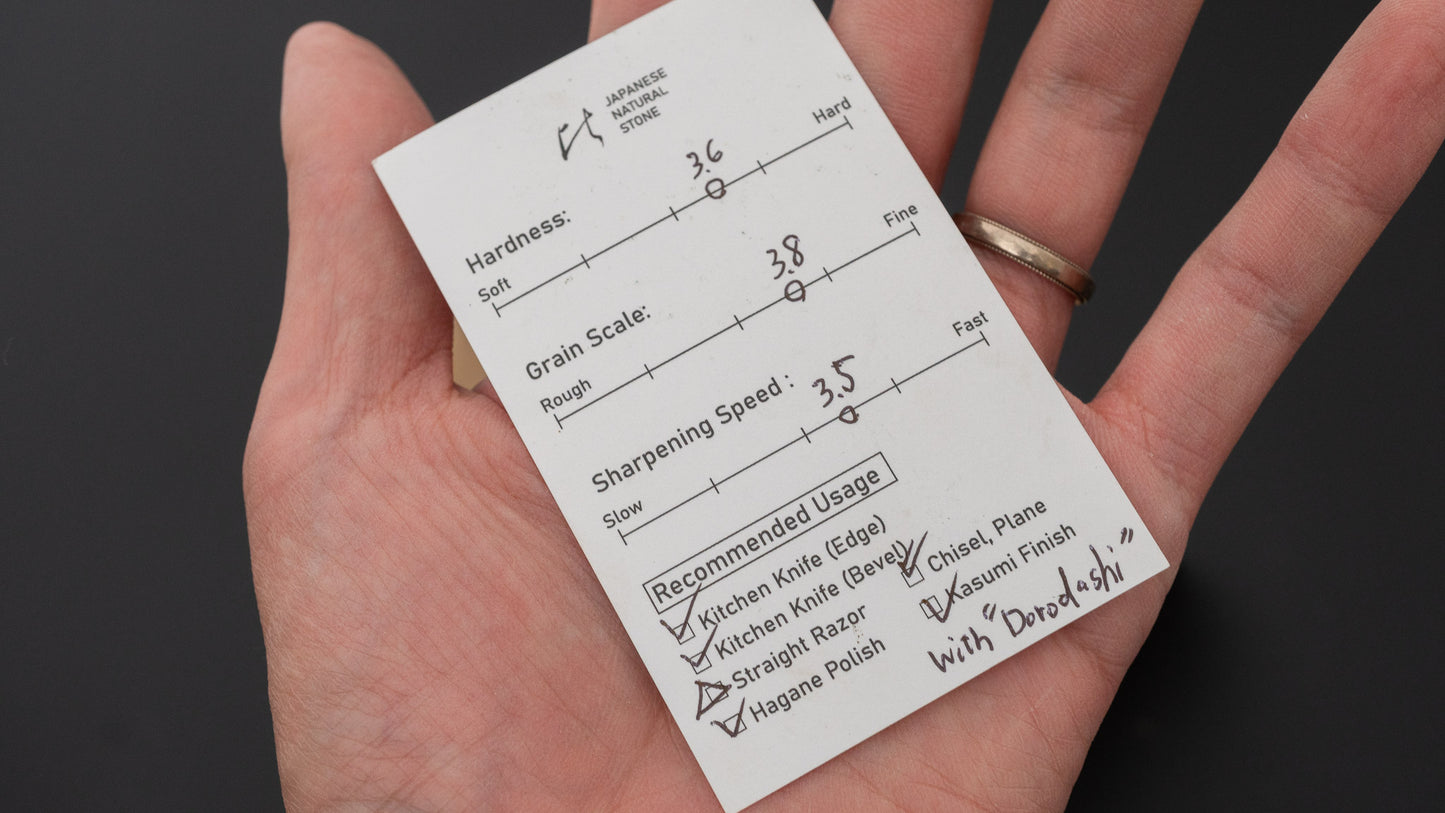 JAPANESE
NATURAL
STONE
Hardness:
3.6
Soft Hard
Grain Scale:
3.8
Rough Fine
Sharpening Speed :
3.5
Slow Fast
Recommended Usage
Kitchen Knife (Edge)
Kitchen Knife (Bevel)
Straight Razor
Hagane Polish
Chisel, Plane
Kasumi Finish
with "Dorodashi"